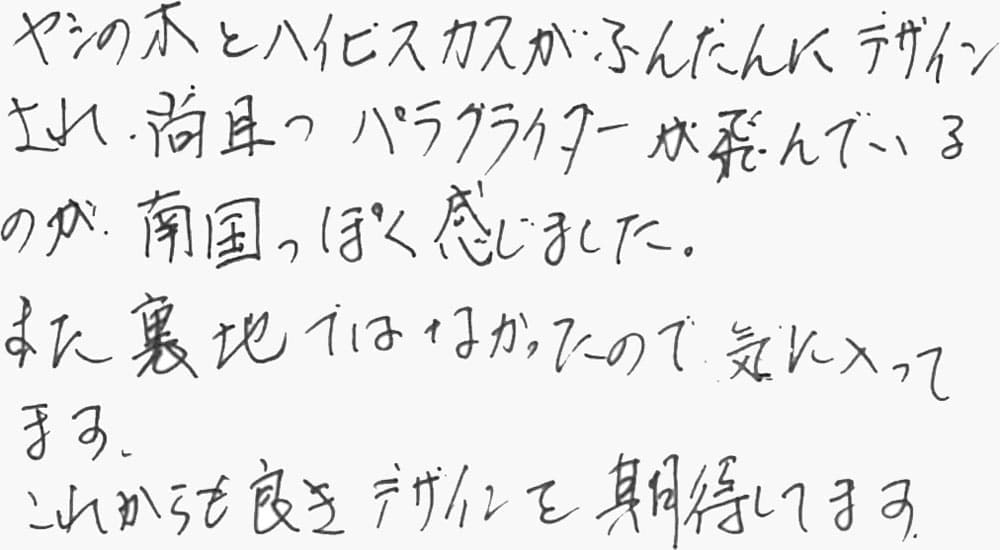 ヤシの木とハイビスカスがふんだんにデザイン
され、尚且つ パラグライダーが飛んでいる
のが、南国っぽく感じました。
また裏地ではなかったので、気に入って
ます。
これからも良きデザインを期待してます。